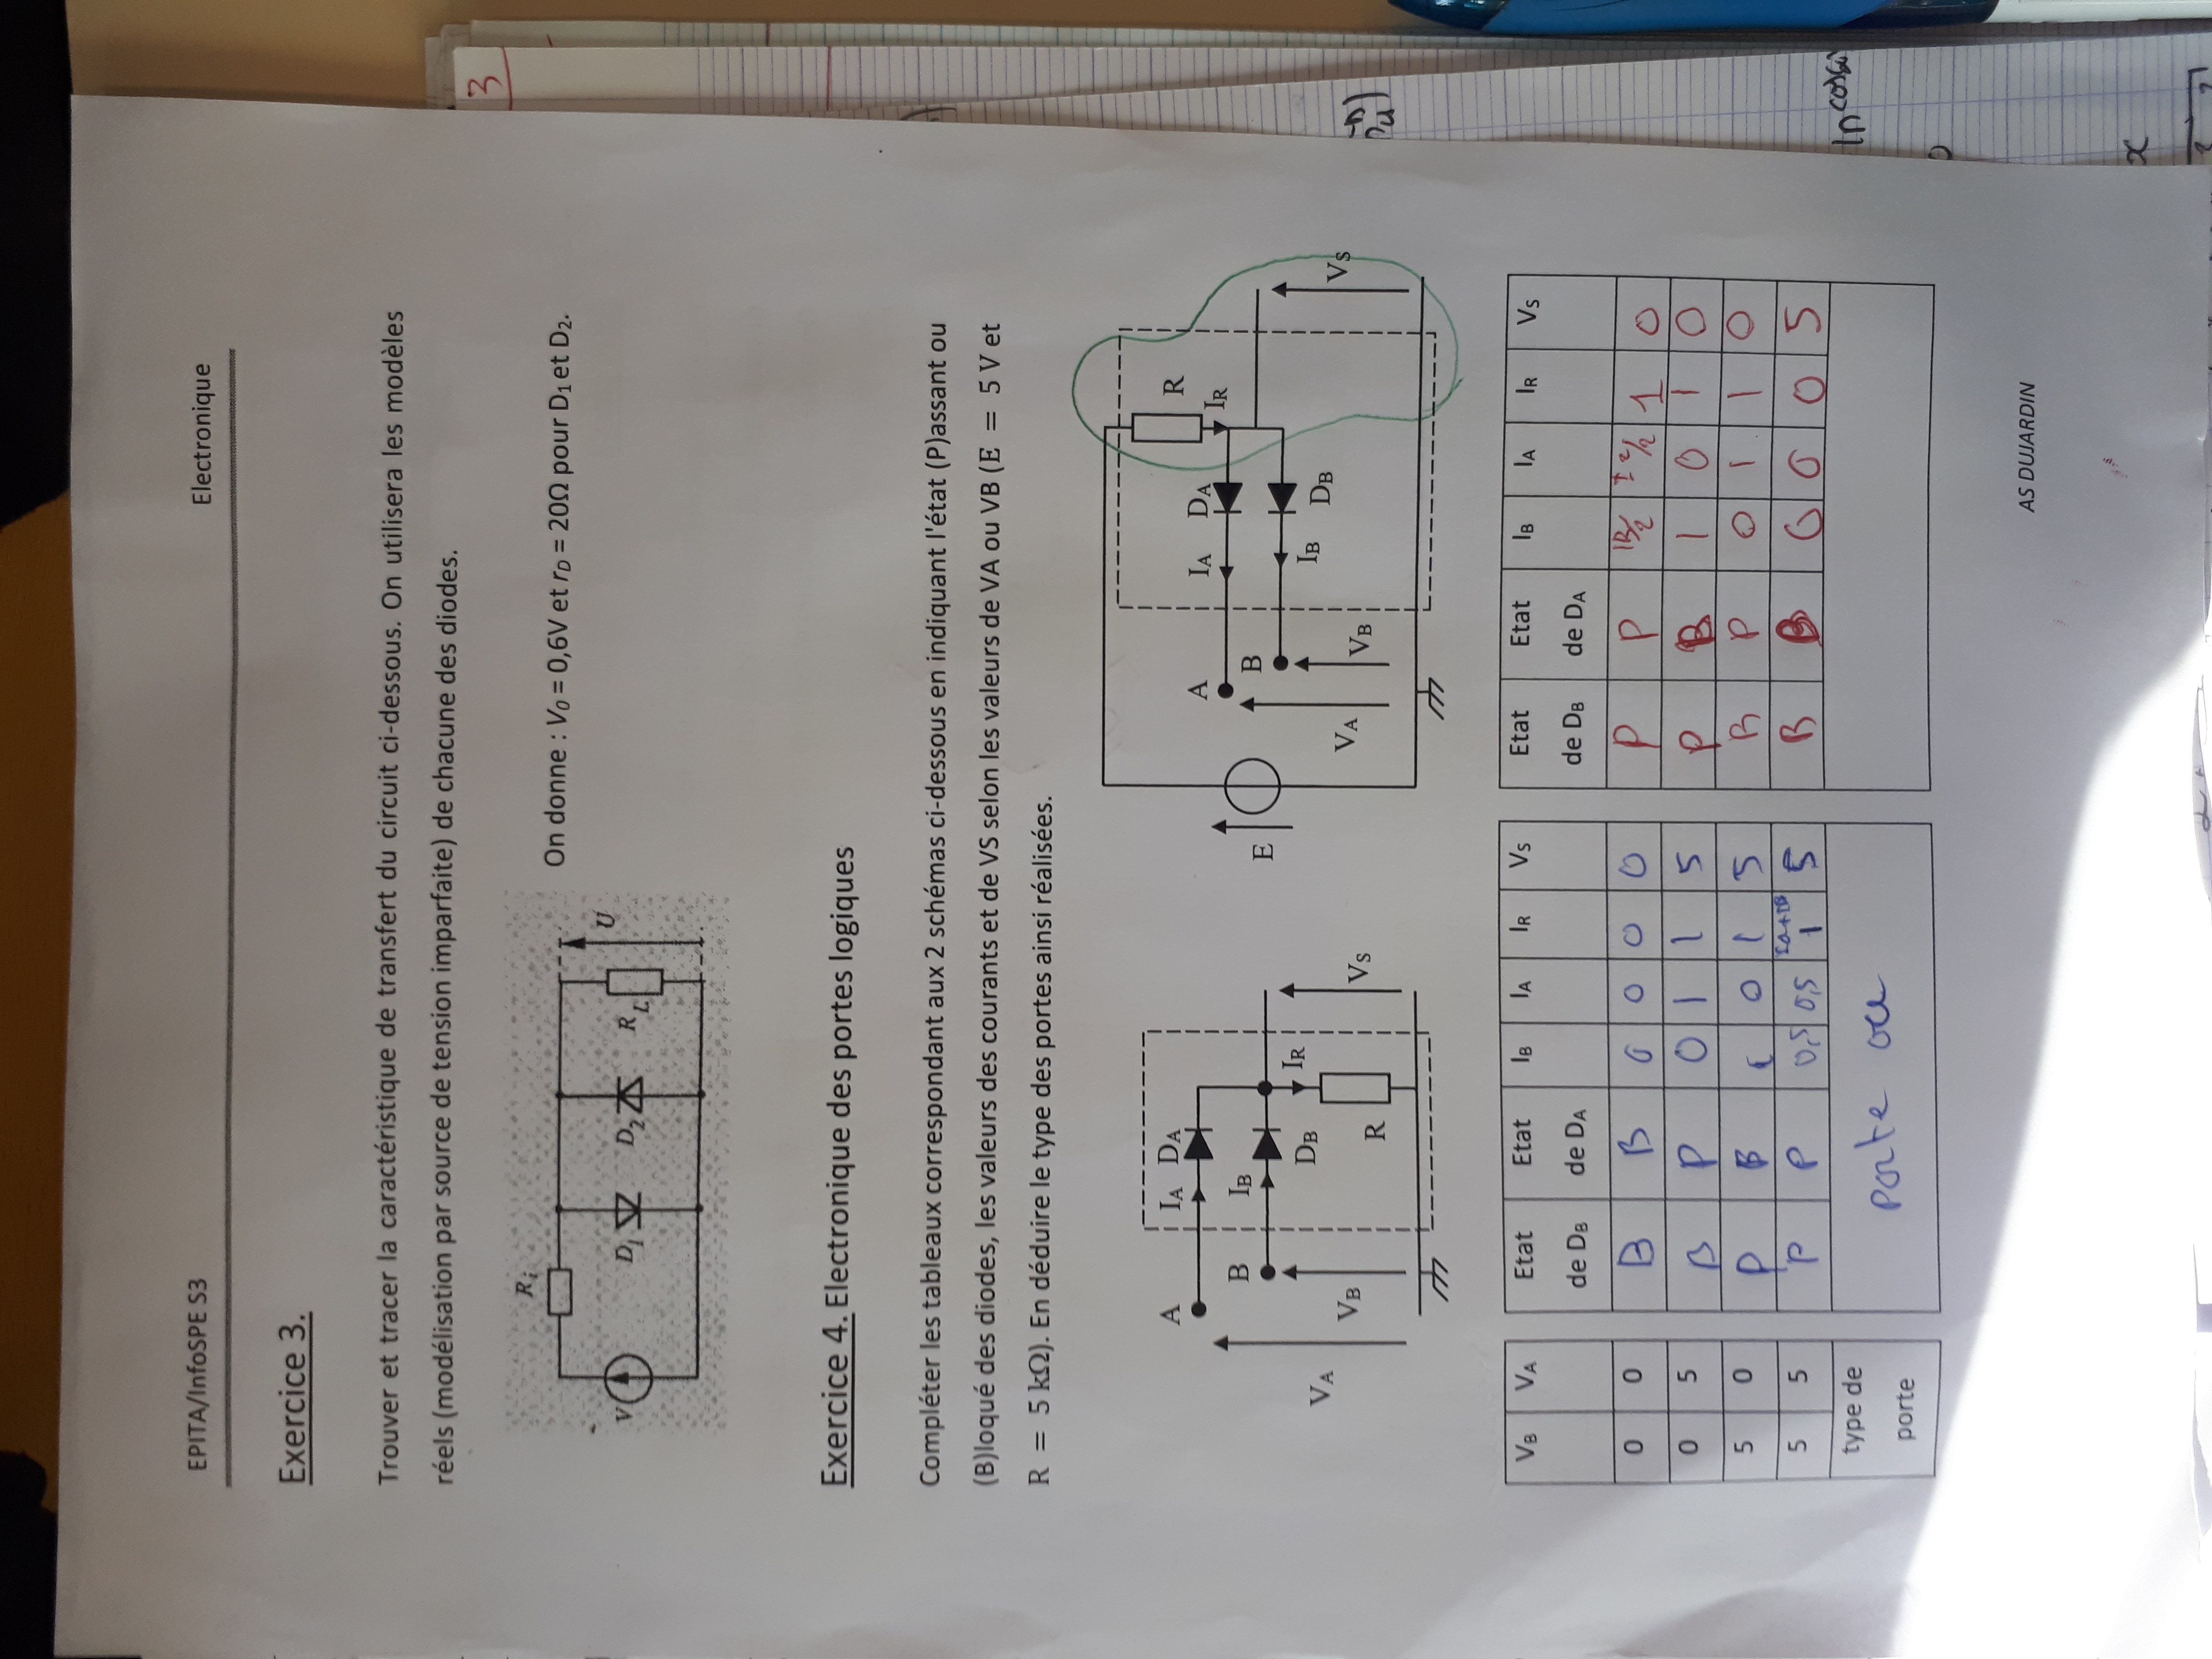 EPITA/InfoSPE S3 Electronique
Exercice 3.
Trouver et tracer la caractéristique de transfert du circuit ci-dessous. On utilisera les modèles
réels (modélisation par source de tension imparfaite) de chacune des diodes.
On donne : V0 = 0,6V et rD = 20Ω pour D1 et D2.
Ri
V
D1
D2
RL
U
Exercice 4. Electronique des portes logiques
Compléter les tableaux correspondant aux 2 schémas ci-dessous en indiquant l'état (P)assant ou
(B)loqué des diodes, les valeurs des courants et de VS selon les valeurs de VA ou VB (E = 5 V et
R = 5 kΩ). En déduire le type des portes ainsi réalisées.
A IA DA
B IB DB
IR
R
VA VB VS
E
A IA DA
B IB DB
R
IR
VA VB VS
VB VA Etat de DB Etat de DA IB IA IR VS Etat de DB Etat de DA IB IA IR VS
0 0 B B 0 0 0 0 P P 1 0
0 5 B P 0 1 1 5 P B 1 0 1 0
5 0 P B 1 0 1 5 B P 0 1 1 0
5 5 P P 0,5 0,5 1 5 B B 0 0 0 5
type de porte porte ou
AS DUJARDIN
3
ln cos
x